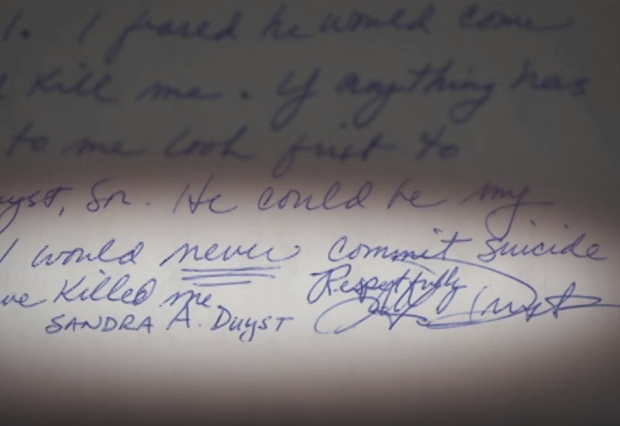 1. I feared he would come
Kill me. If anything has
to me look first to
uyst, Sr. He could be my
I would never commit suicide
ve Killed me Respectfully
SANDRA A. Duyst